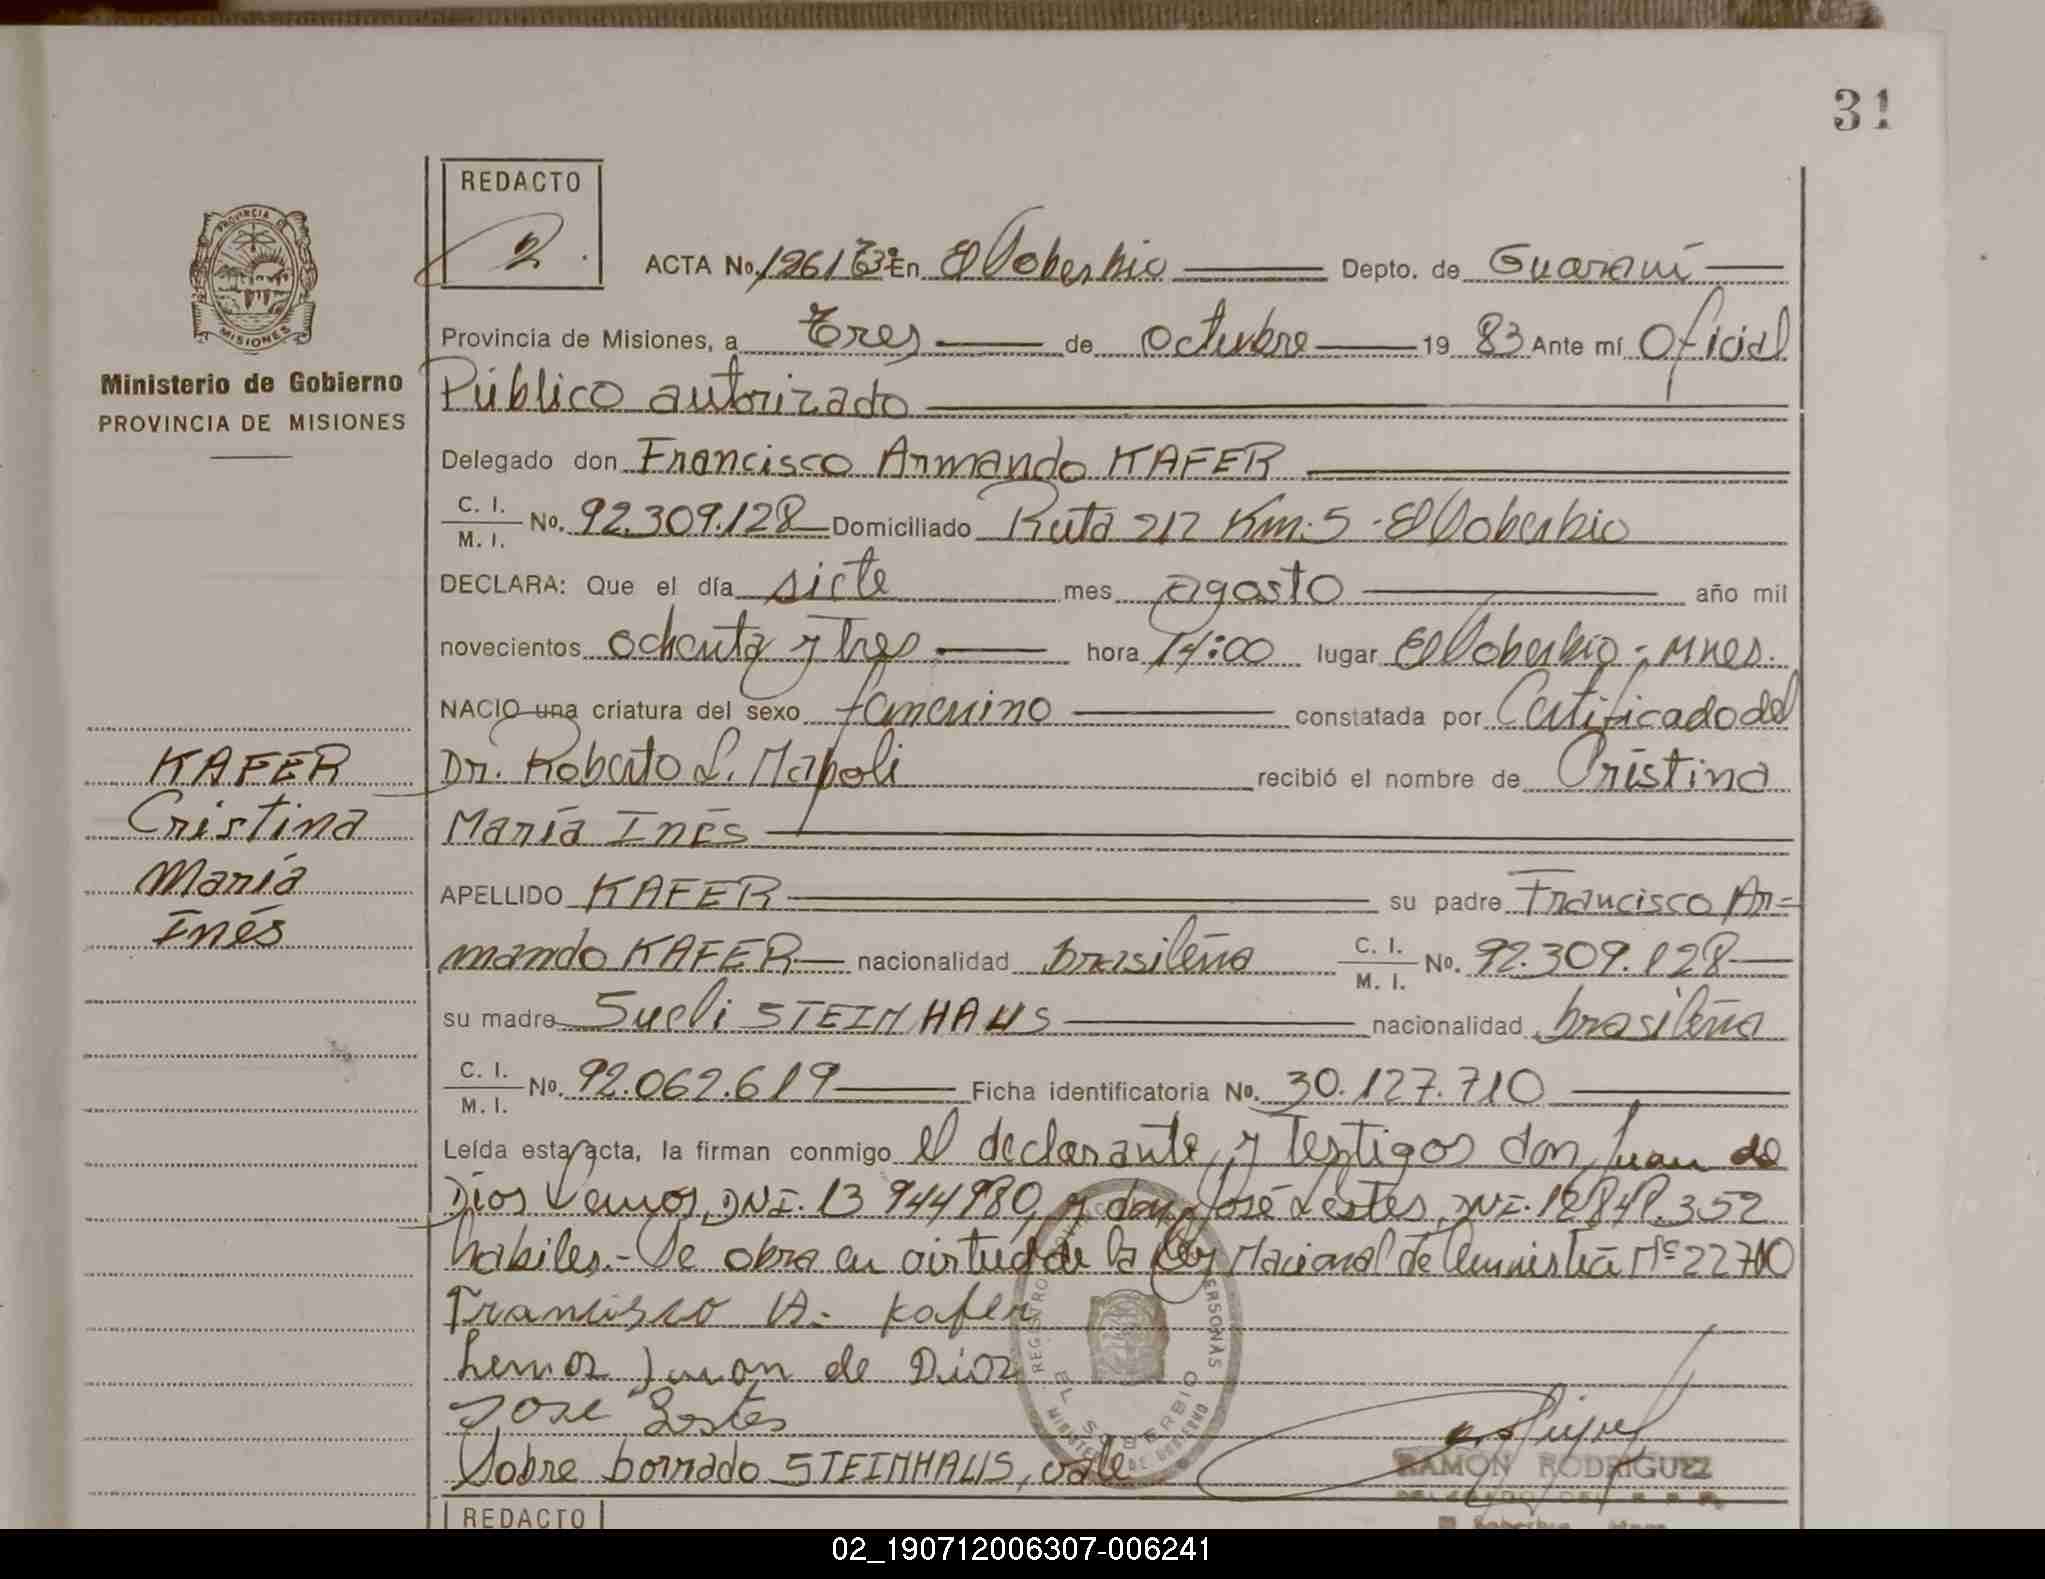 31
REDACTO
2.
PROVINCIA DE
MISIONES
Ministerio de Gobierno
PROVINCIA DE MISIONES
ACTA No. En El Soberbio Depto. de Guaraní
Provincia de Misiones, a Tres de Octubre 19 83 Ante mí Oficial
Público autorizado
Delegado don Francisco Armando KAFER
C. I.
M. I. No. 92.309.128 Domiciliado Ruta 212 Km. 5 - El Soberbio
DECLARA: Que el día siete mes agosto año mil
novecientos ochenta y tres hora 14:00 lugar El Soberbio - Mnes.
NACIO una criatura del sexo femenino constatada por Certificado del
Dr. Roberto L. Napoli recibió el nombre de Cristina
María Inés
APELLIDO KAFER su padre Francisco Ar=
mando KAFER nacionalidad brasileña C. I.
M. I. No. 92.309.128
su madre Sueli STEINHAUS nacionalidad brasileña
C. I.
M. I. No. 92.062.619 Ficha identificatoria No. 30.127.710
Leída esta acta, la firman conmigo el declarante, y testigos don Juan de
Dios Lemos, DNI. 13 944980, y don José Lestes, DNI. 12848.352
habiles.- Se obra en virtud de la Ley Nacional de Amnistía Nº 22700
Francisco A. Kafer
Lemos Juan de Dios
Jose Lestes
Sobre borrado STEINHAUS, vale
KAFER
Cristina
María
Inés
REGISTRO PERSONAS
EL SOBERBIO
MINISTERIO DE GOBIERNO
RAMON RODRIGUEZ
REDACTO
02_190712006307-006241